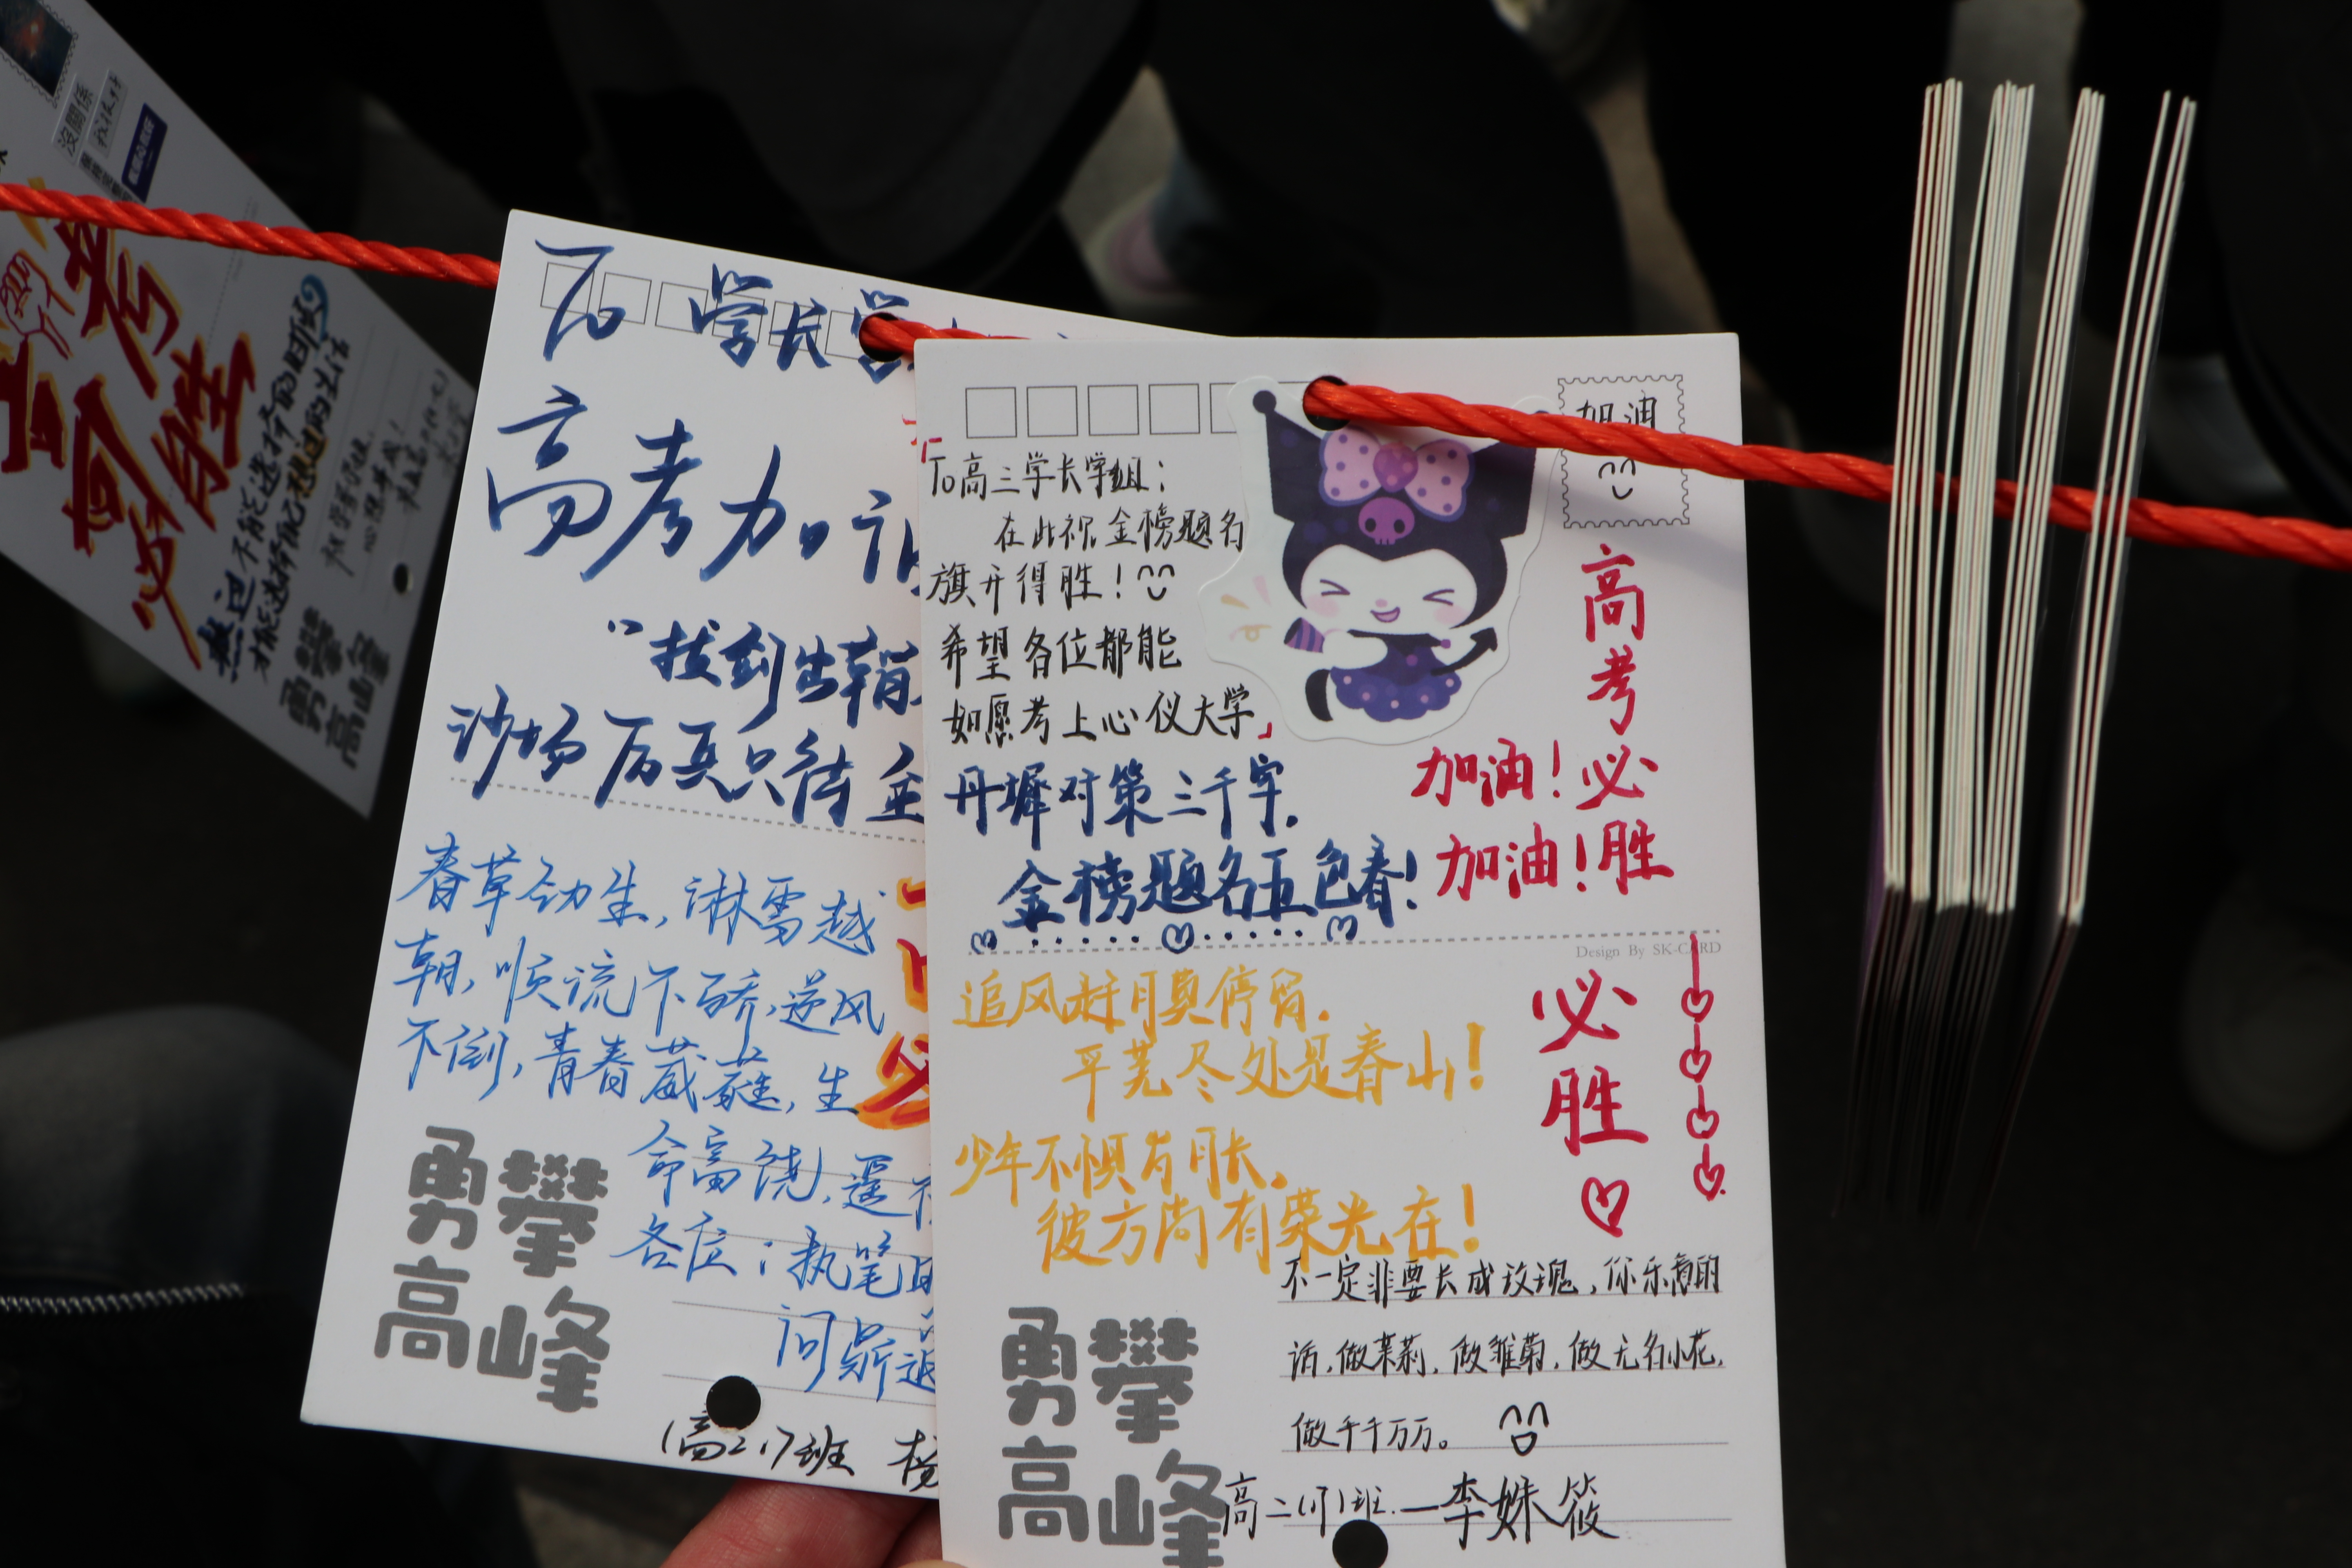 没關係
考
必胜
熬过
不能选择的
勇攀
高峰
To 学长学
高考加油
“拔剑出鞘
沙场厉兵只待
春草劲生,淋雪越
朝,顺流不骄,逆风
不倒,青春葳蕤,生
命富饶,遥祝
各位:执笔
问鼎
勇攀
高峰
(高二.17班 杨
加油
「To高三学长学姐:
在此祝金榜题名
旗开得胜!
希望各位都能
如愿考上心仪大学」
丹墀对策三千字.
金榜题名五色春!
高考必胜
加油!
加油!
Design By SK-CARD
追风赶月莫停留.
平芜尽处是春山!
少年不惧岁月长.
彼方尚有荣光在!
必胜
不一定非要长成玫瑰,你乐意的
话,做茉莉,做雏菊,做无名小花,
做千千万万。
勇攀
高峰
高二(17)班.—李姝筱